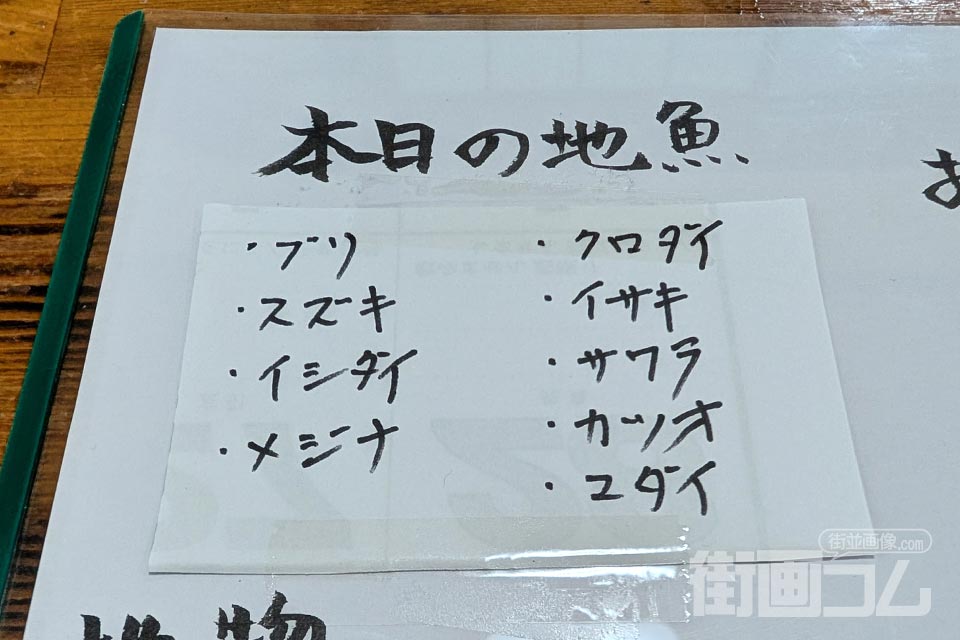 本日の地魚
・ブリ
・スズキ
・イシダイ
・メジナ
・クロダイ
・イサキ
・サワラ
・カツオ
・コダイ
お
物
街並画像.com
街画コム